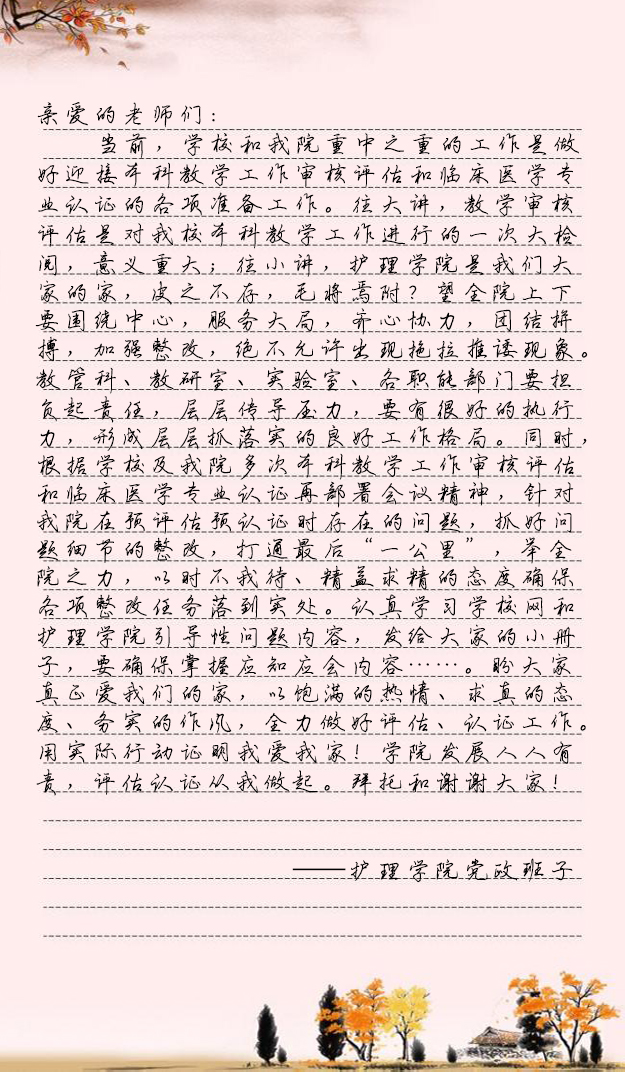 亲爱的老师们：
当前，学校和我院重中之重的工作是做
好迎接本科教学工作审核评估和临床医学专
业认证的各项准备工作。往大讲，教学审核
评估是对我校本科教学工作进行的一次大检
阅，意义重大；往小讲，护理学院是我们大
家的家，皮之不存，毛将焉附？望全院上下
要围绕中心，服务大局，齐心协力，团结拼
搏，加强整改，绝不允许出现拖拉推诿现象。
教管科、教研室、实验室、各职能部门要担
负起责任，层层传导压力，要有很好的执行
力，形成层层抓落实的良好工作格局。同时，
根据学校及我院多次本科教学工作审核评估
和临床医学专业认证再部署会议精神，针对
我院在预评估预认证时存在的问题，抓好问
题细节的整改，打通最后“一公里”，举全
院之力，以时不我待、精益求精的态度确保
各项整改任务落到实处。认真学习学校网和
护理学院引导性问题内容，发给大家的小册
子，要确保掌握应知应会内容……。盼大家
真正爱我们的家，以饱满的热情、求真的态
度、务实的作风，全力做好评估、认证工作。
用实际行动证明我爱我家！学院发展人人有
责，评估认证从我做起。拜托和谢谢大家！
——护理学院党政班子